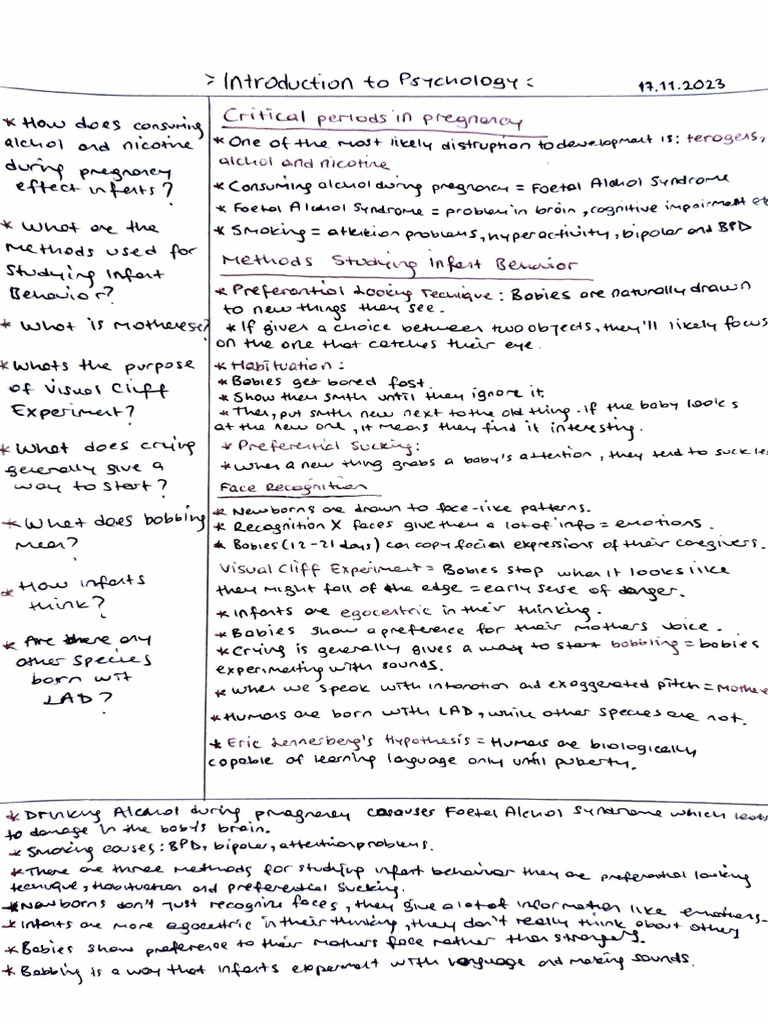 > Introduction to Psychology <
17.11.2023
* How does consuming
alchol and nicotine
during pregnancy
effect infants?
* What are the
Methods used for
Studying Infant
Behavior?
* What is Motherese?
* Whats the purpose
of Visual Cliff
Experiment?
* What does crying
generally give a
way to start?
* What does bobbing
mean?
* How infants
think?
* Are there any
other species
born wit
LAD?
Critical periods in pregnancy
* One of the most likely distruption to development is: terogens,
alchol and nicotine
* Consuming alchol during pregnancy = Foetal Alchol Syndrome
* Foetal Alchol Syndrome = problem in brain, cognitive impairment et
* Smoking = attention problems, hyperactivity, bipolar and BPD
Methods Studying Infant Behavior
* Preferential Looking Technique: Babies are naturally drawn
to new things they see.
* If given a choice between two objects, they'll likely focus
on the one that catches their eye.
* Habituation:
* Babies get bored fast.
* Show them smth until they ignore it.
* Then, put smth new next to the old thing. If the baby looks
at the new one, it means they find it interesting.
* Preferential Sucking:
* When a new thing grabs a baby's attention, they tend to suck les
Face Recognition
* Newborns are drawn to face-like patterns.
* Recognition X faces give them a lot of info = emotions.
* Babies (12-21 days) can copy facial expressions of their caregivers.
Visual Cliff Experiment = Babies stop when it looks like
they might fall of the edge = early sense of danger.
* Infants are egocentric in their thinking.
* Babies show a preference for their mothers voice.
* Crying is generally gives a way to start bobbling = babies
experimenting with sounds.
* When we speak with intonation and exaggerated pitch = Mothere
* Humans are born with LAD, while other species are not.
* Eric Lennesberg's Hypothesis = Humans are biologically
capable of learning language only until puberty.
* Drinking Alcahol during pregnancy causes Foetal Alchol Syndrome which leads
to damage in the baby's brain.
* Smoking causes: BPD, bipolar, attention problems.
* There are three methods for studying infant behavior they are preferential looking
tecnique, Habituation and preferential sucking.
* Newborns don't just recognize faces, they give a lot of information like emotions.
* Infants are more egocentric in their thinking, they don't really think about others
* Babies show preference to their mothers face rather than strangers.
* Babbing is a way that infants experiment with language and making sounds.